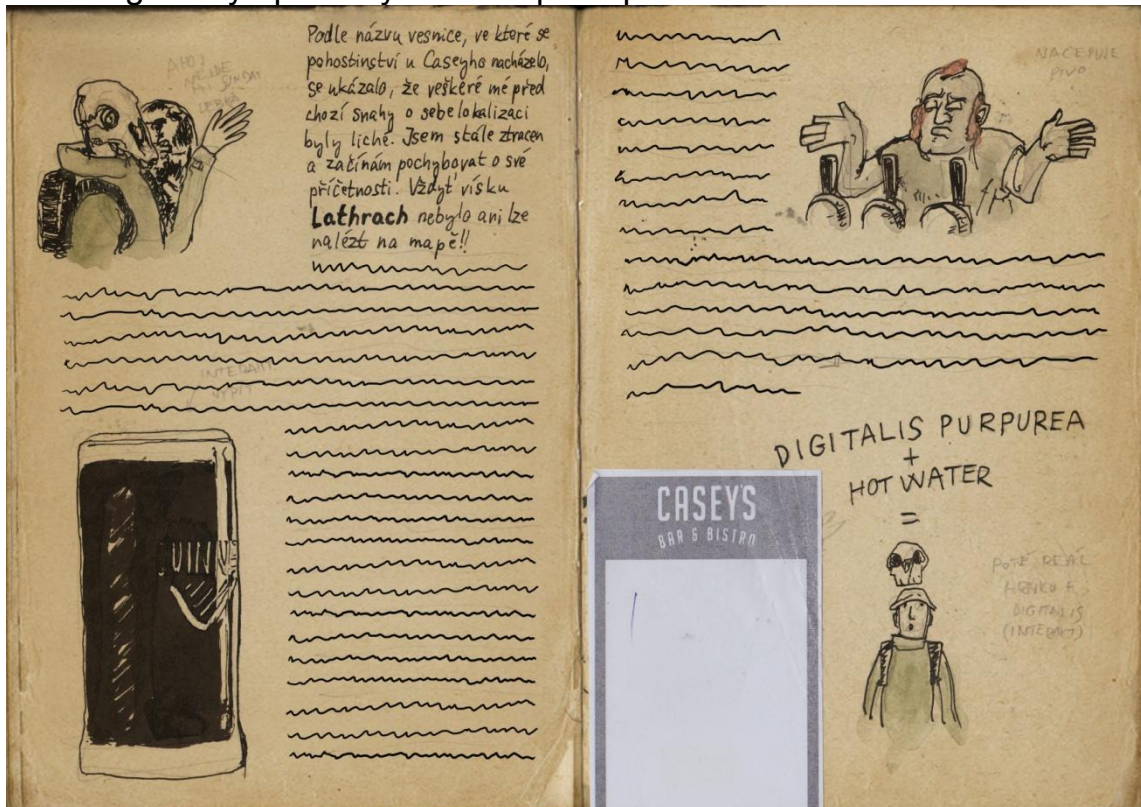 AHOJ
NEJDE
SUNDAT
LEBKA
Podle názvu vesnice, ve které se
pohostinství u Caseyho nacházelo,
se ukázalo, že veškeré mé před
chozí snahy o sebelokalizaci
byly liché. Jsem stále ztracen
a začínám pochybovat o své
příčetnosti. Vždyť vísku
Lathrach nebylo ani lze
nalézt na mapě!!
VYPÍT
NACEPUJE
PIVO
DIGITALIS PURPUREA
+
HOT WATER
=
CASEY'S
BAR & BISTRO
POTÉ
DIGITALIS
(INTERAKT)